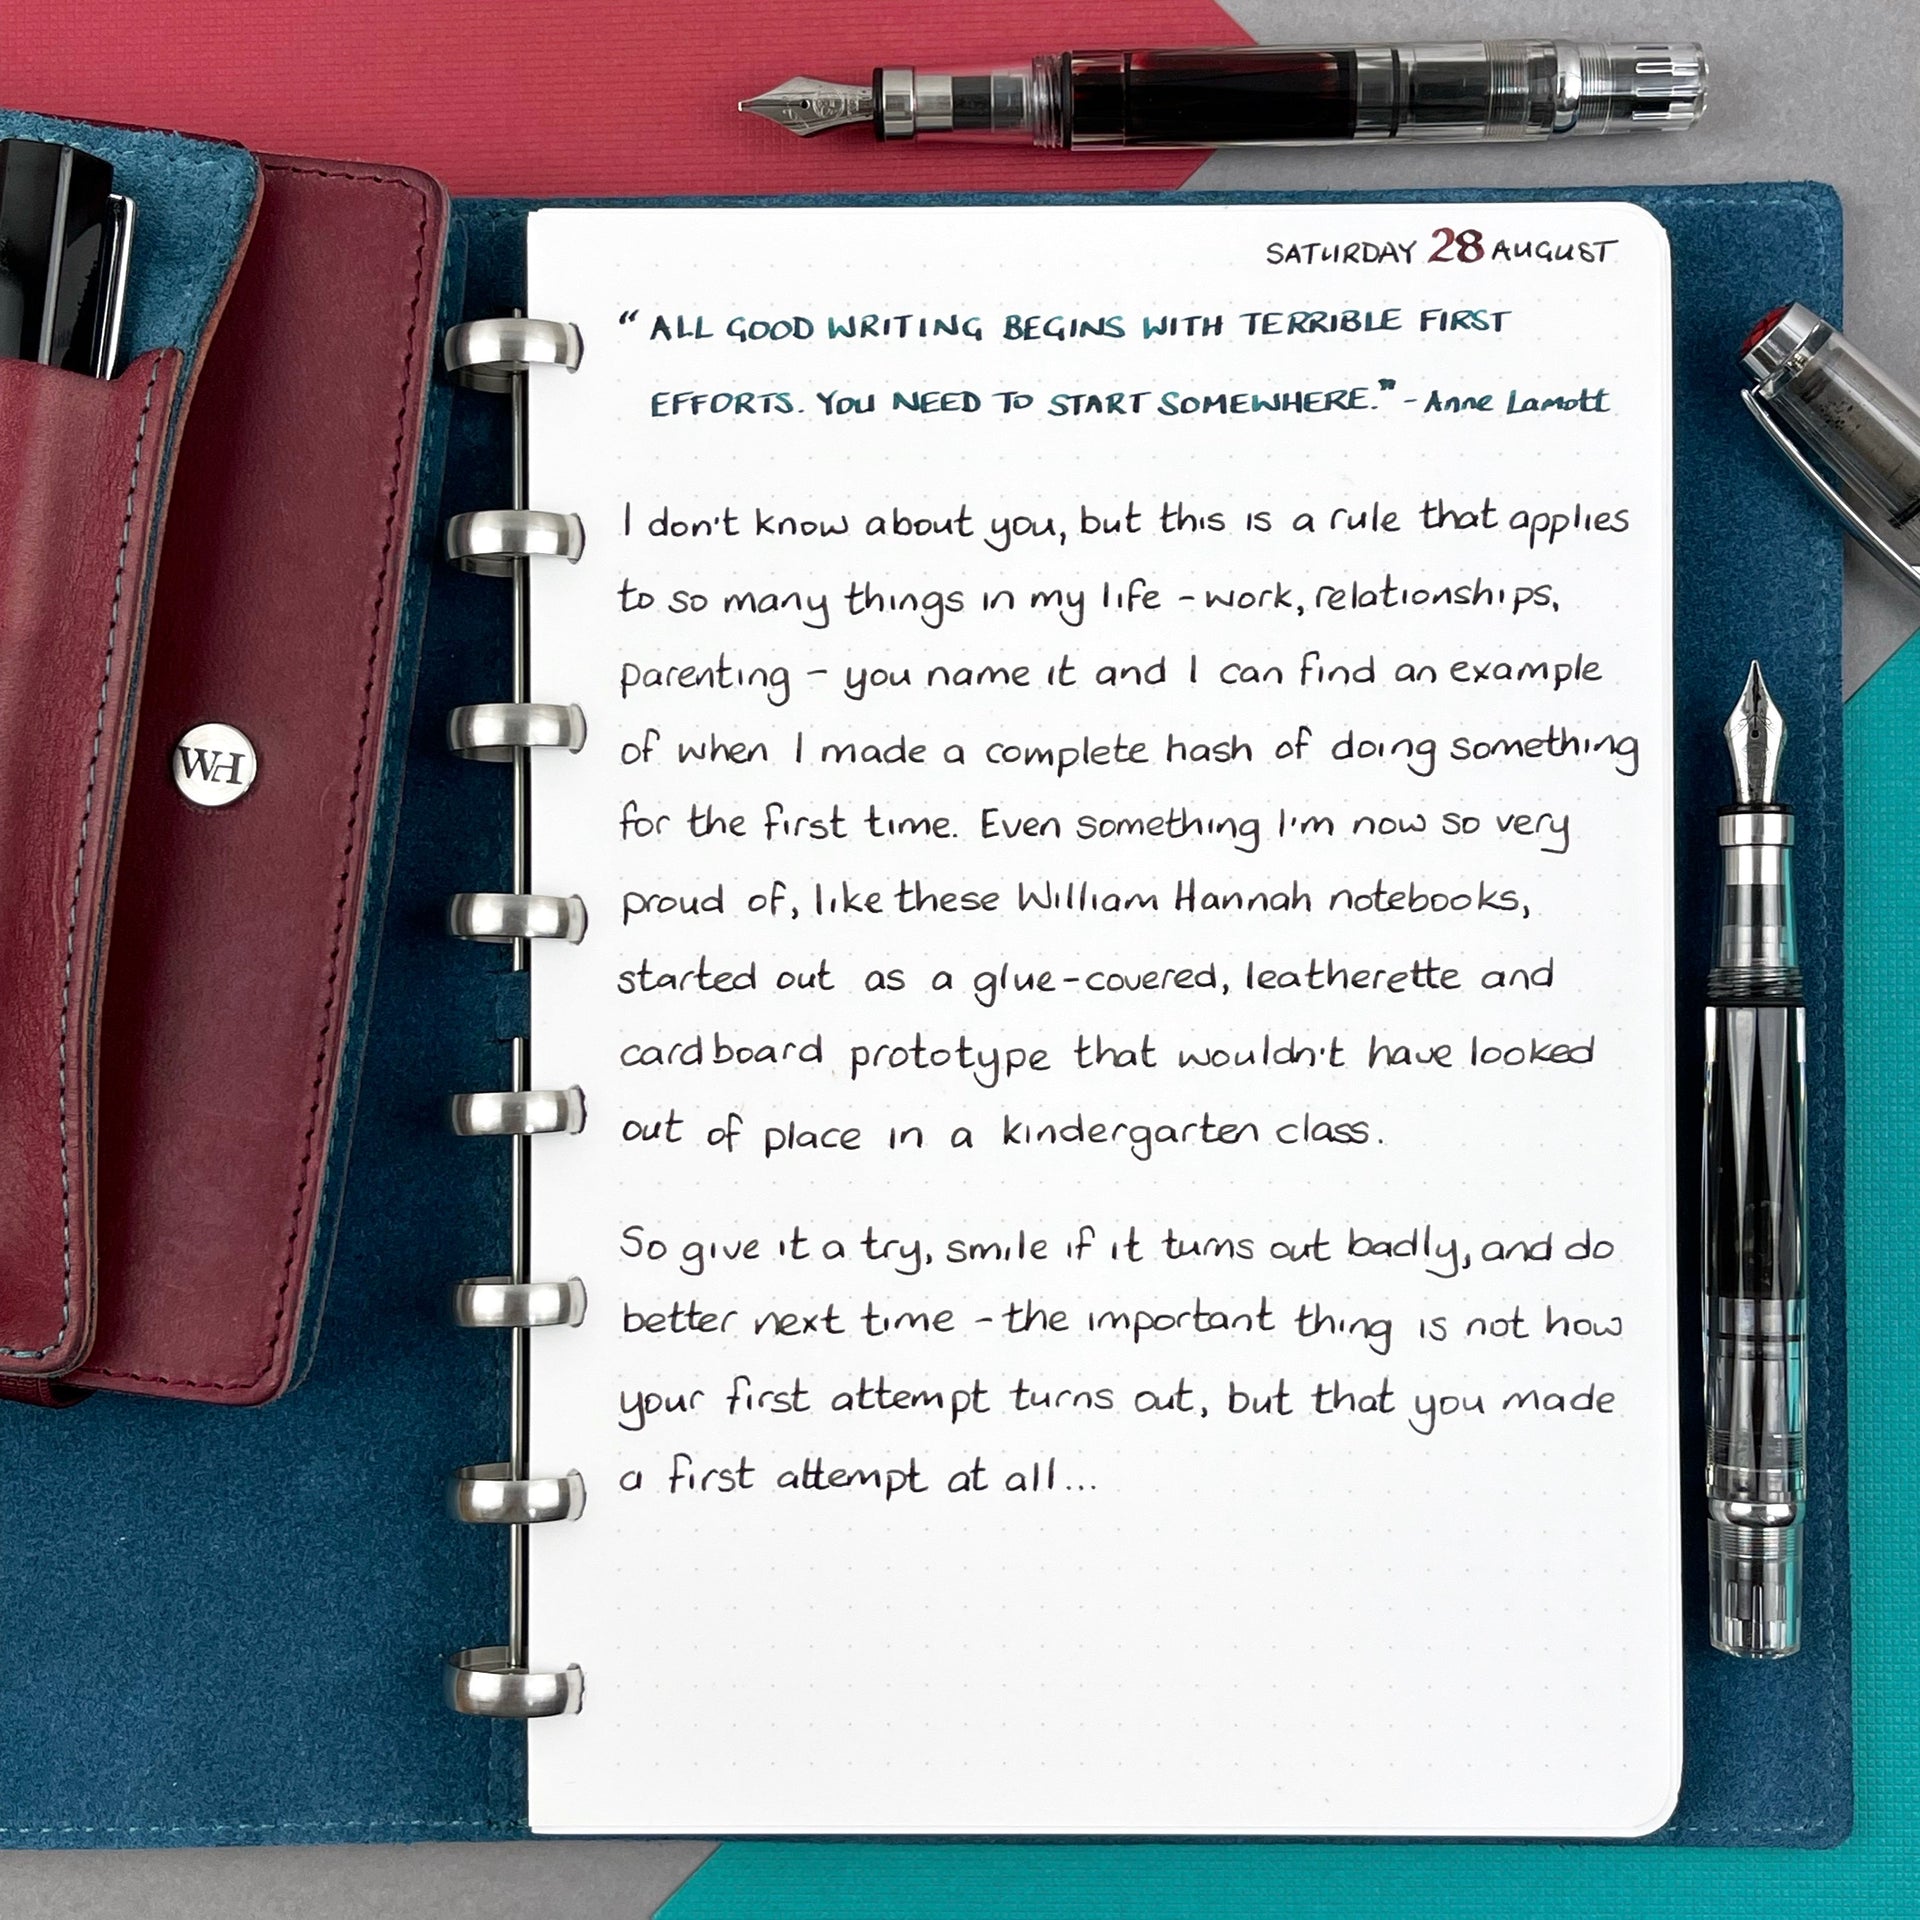 SATURDAY 28 AUGUST
“ ALL GOOD WRITING BEGINS WITH TERRIBLE FIRST
EFFORTS. YOU NEED TO START SOMEWHERE.” - Anne Lamott
I don't know about you, but this is a rule that applies
to so many things in my life - work, relationships,
parenting - you name it and I can find an example
of when I made a complete hash of doing something
for the first time. Even something I'm now so very
proud of, like these William Hannah notebooks,
started out as a glue-covered, leatherette and
cardboard prototype that wouldn't have looked
out of place in a kindergarten class.
So give it a try, smile if it turns out badly, and do
better next time - the important thing is not how
your first attempt turns out, but that you made
a first attempt at all...
WH